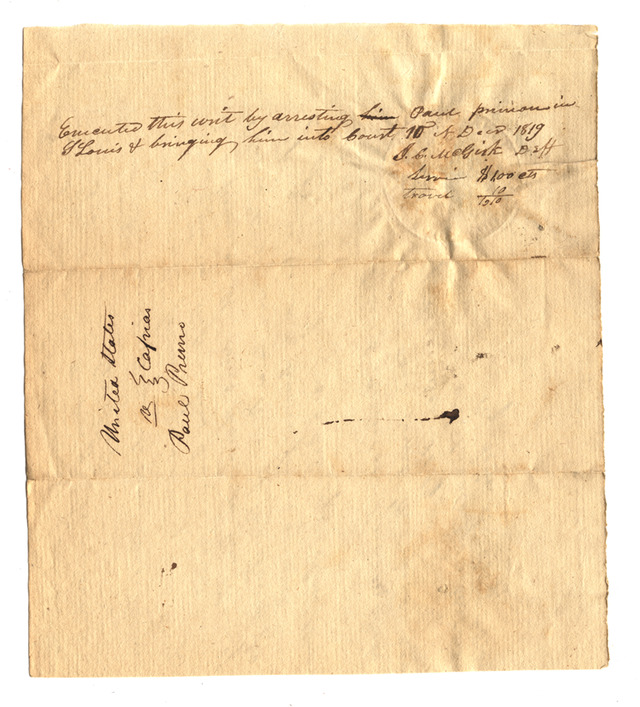 Executed this writ by arresting him Paul primion in
St Louis & bringing him into Court 10th of Decr 1819
McGirk D Sff
Servin $1.00 cts
travel 10
United States
vs } Capias
Paul Primo